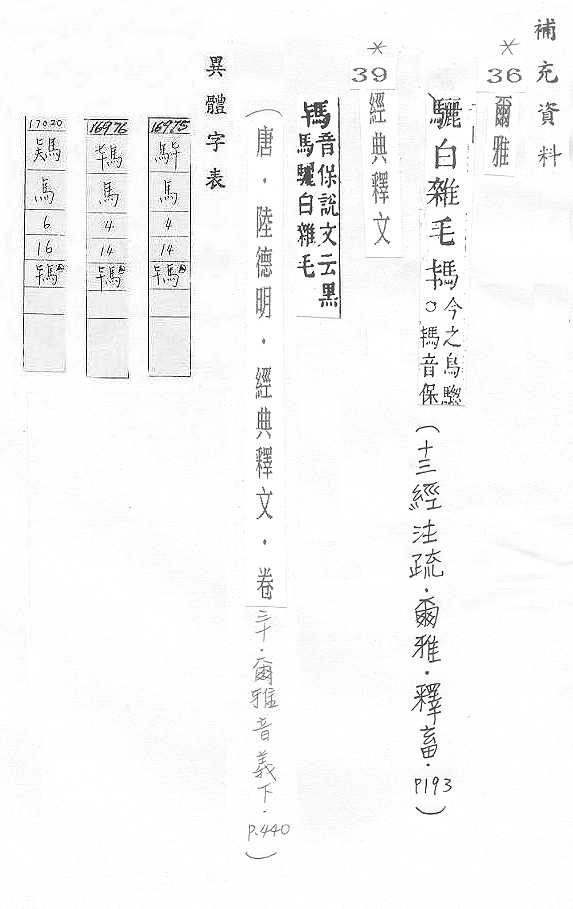 補充資料
* 36
爾雅
驪白雜毛駂
今之烏驄
○駂音保
(十三經注疏.爾雅.釋畜.P193)
* 39
經典釋文
駂音保說文云黑
馬驪白雜毛
(唐.陸德明.經典釋文.卷三十.爾雅音義下.P.440)
異體字表
16975
馬
4
14
駂
16976
馬
4
14
駂
17020
馬
6
16
駂